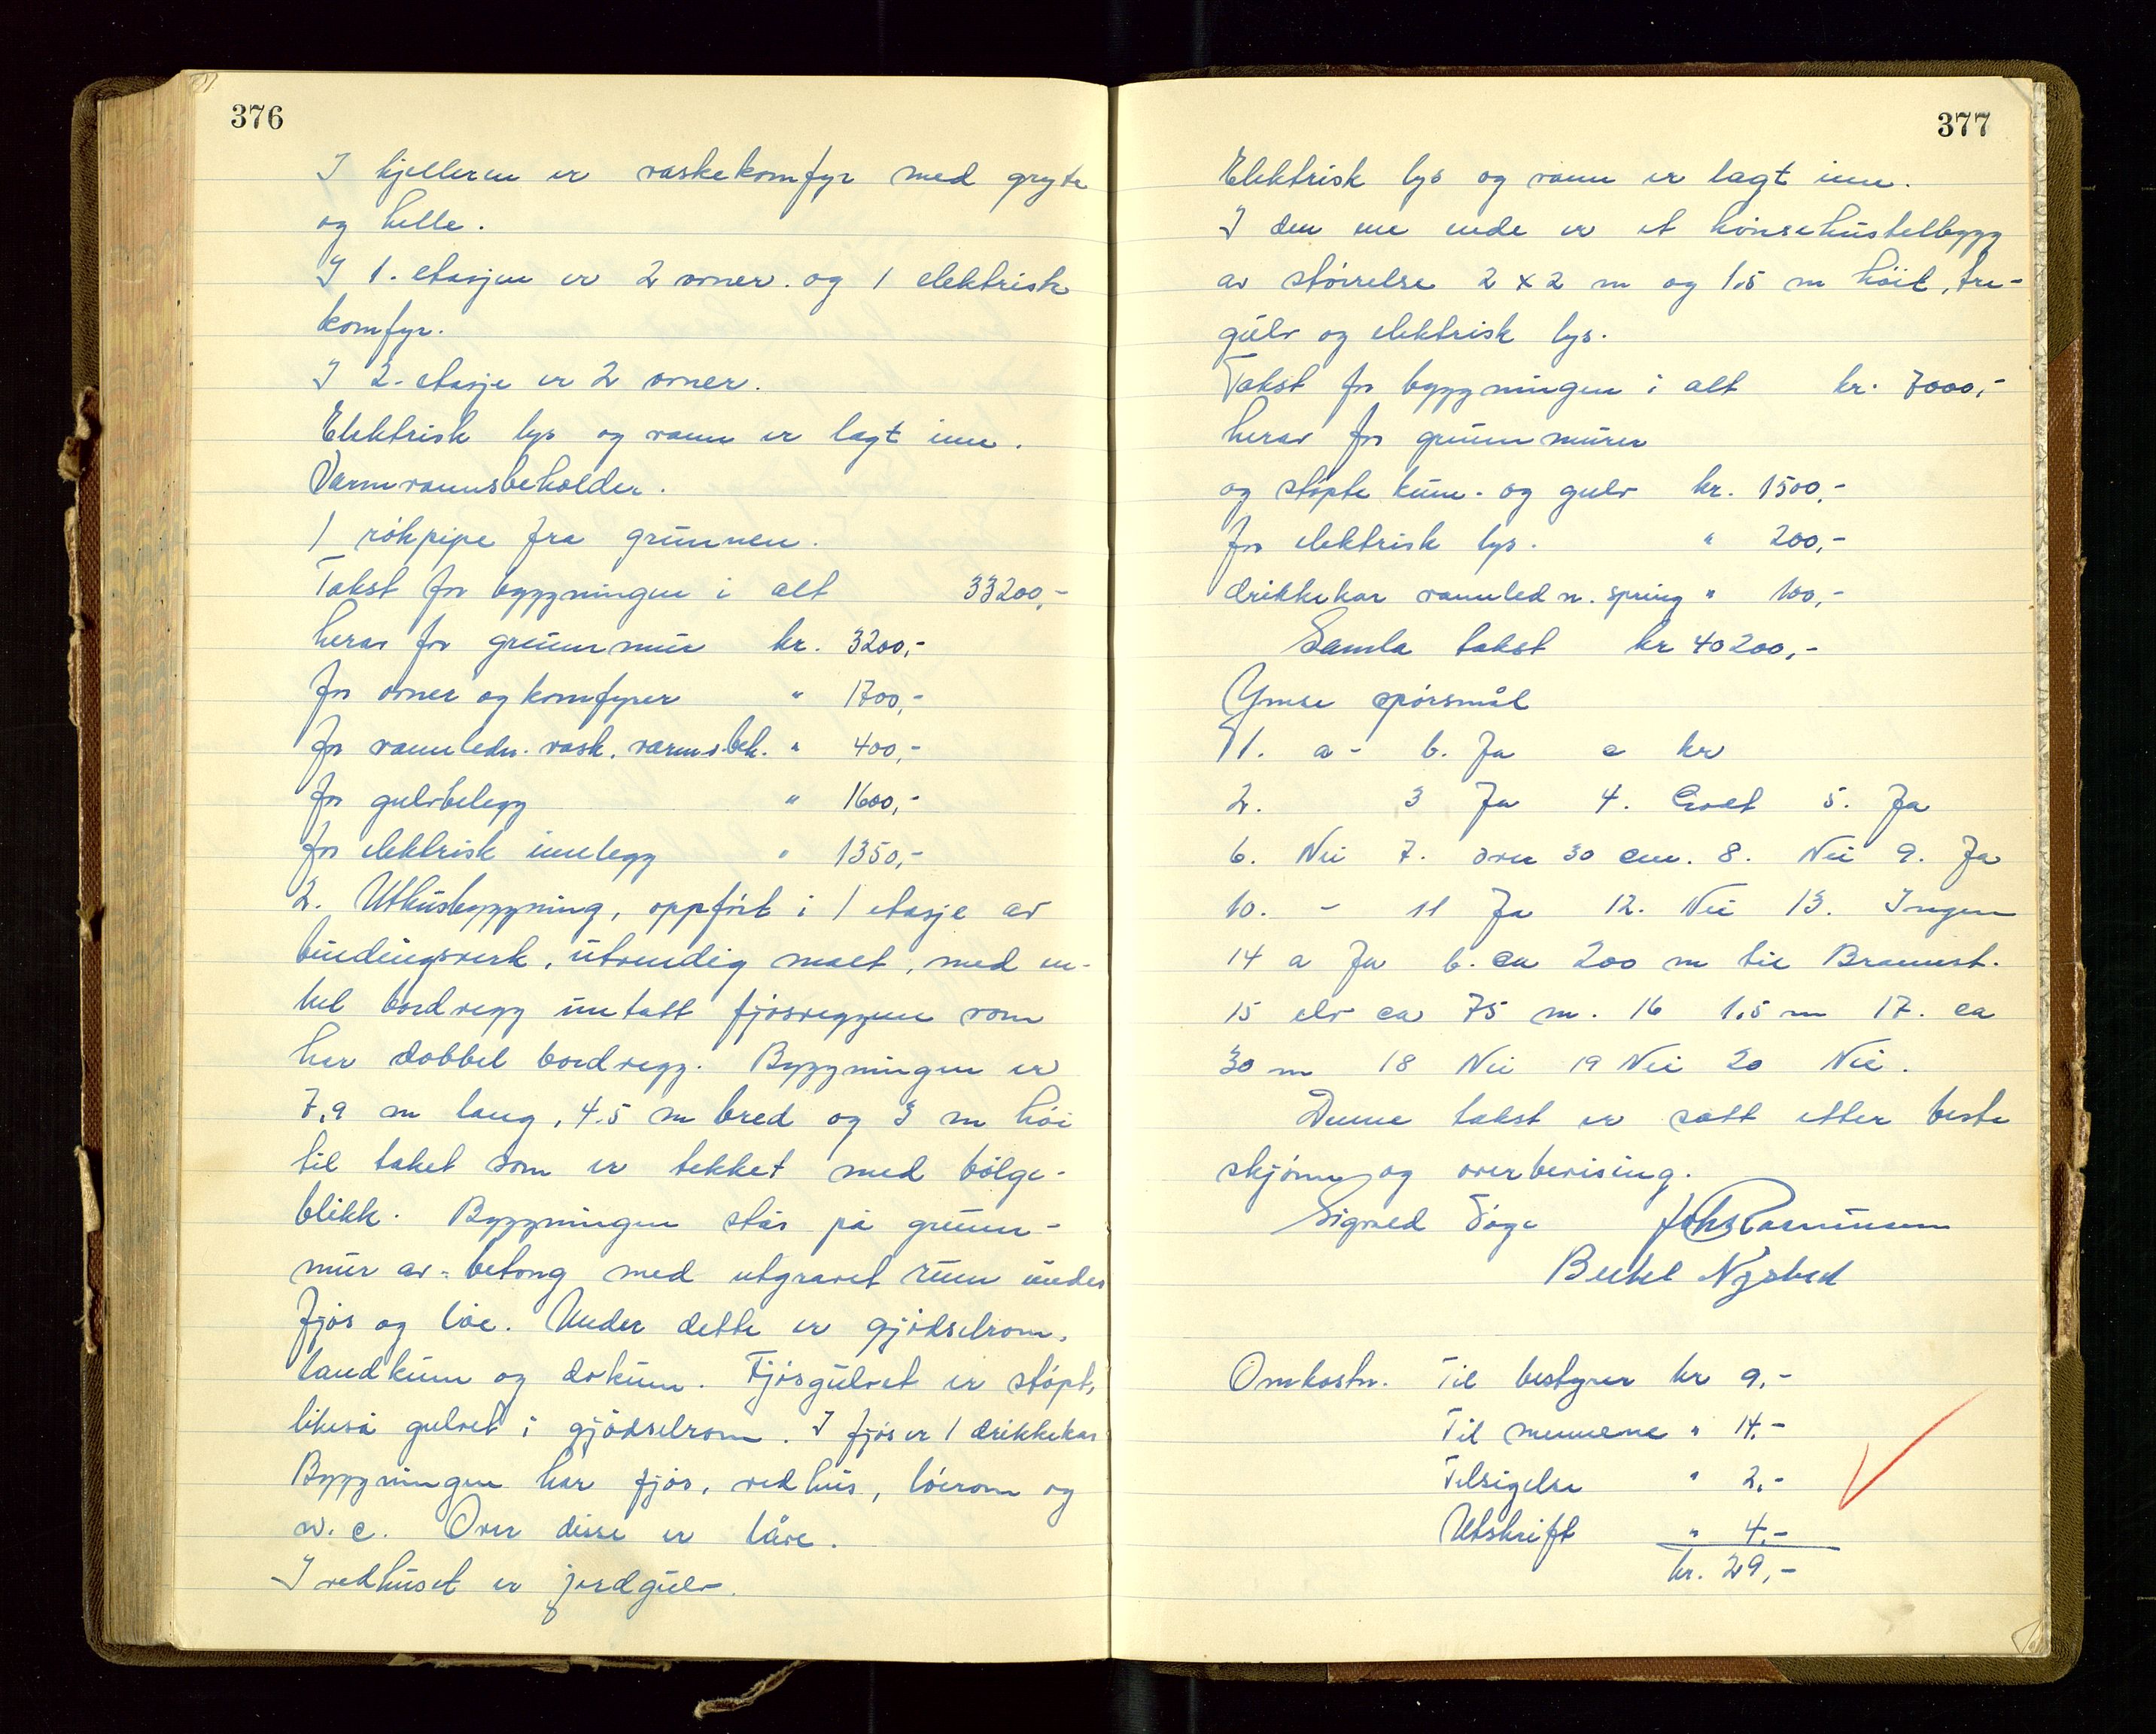 376
I kjelleren er vaskekomfyr med gryte
og helle.
I 1. etasjen er 2 ovner. og 1 elektrisk
komfyr.
I 2. etasje er 2 ovner.
Elektrisk lys og vann er lagt inn.
Varmvannsbeholder.
1 rökpipe fra grunnen.
Takst for bygygningen i alt 33200,-
herav for grunnmur kr. 3200,-
for ovner og komfyrer " 1700,-
for vannledn. vask. varmv.beh. " 400,-
for gulvbelegg " 1600,-
for elektrisk innlegg " 1350,-
2. Uthusbyggning, oppfört i 1 etasje av
bindingsverk, utvendig malt, med en-
kel bordvegg untatt fjösveggene som
har dobbel bordvegg. Byggningen er
7,9 m lang, 4.5 m bred og 3 m höi
til taket som er tekket med bölge-
blikk. Byggningen står på grunn-
mur av betong med utgravet rum under
fjös og löe. Under dette er gjödselrom,
landkum og dokum. Fjösgulvet er stöpt,
likeså gulvet i gjödselrom. I fjös er 1 drikkekar
Byggningen har fjös, vedhus, löerom og
w.c. Over disse er låve.
I vedhuset er jordgulv.
377
Elektrisk lys og vann er lagt inn.
I den ene ende er et hönsehustilbygg
av störrelse 2 x 2 m og 1.5 m höit, tre-
gulv og elektrisk lys.
Takst for byggningen i alt kr. 7000,-
herav for grunnmurer
og stöpte kum- og gulv kr. 1500,-
for elektrisk lys. " 200,-
drikkekar vannledn. spring " 100,-
Samla takst kr 40200,-
Ymse spörsmål
1. a - b. Ja c kr
2. 3 Ja 4. Godt 5. Ja
6. Nei 7. over 30 cm. 8. Nei 9. Ja
10. - 11 Ja 12. Nei 13. Ingen
14 a Ja b. ca 200 m til Brannst.
15 elv ca 75 m. 16 1.5 m 17. ca
30 m 18 Nei 19 Nei 20 Nei.
Denne takst er satt etter beste
skjönn og overbevising.
Sigvald Joh. Rasmussen
Bertel
Omkostn. Til bestyrer kr 9,-
Til mennene " 14.-
Tilsigelse " 2,-
Utskrift " 4.-
kr. 29,-